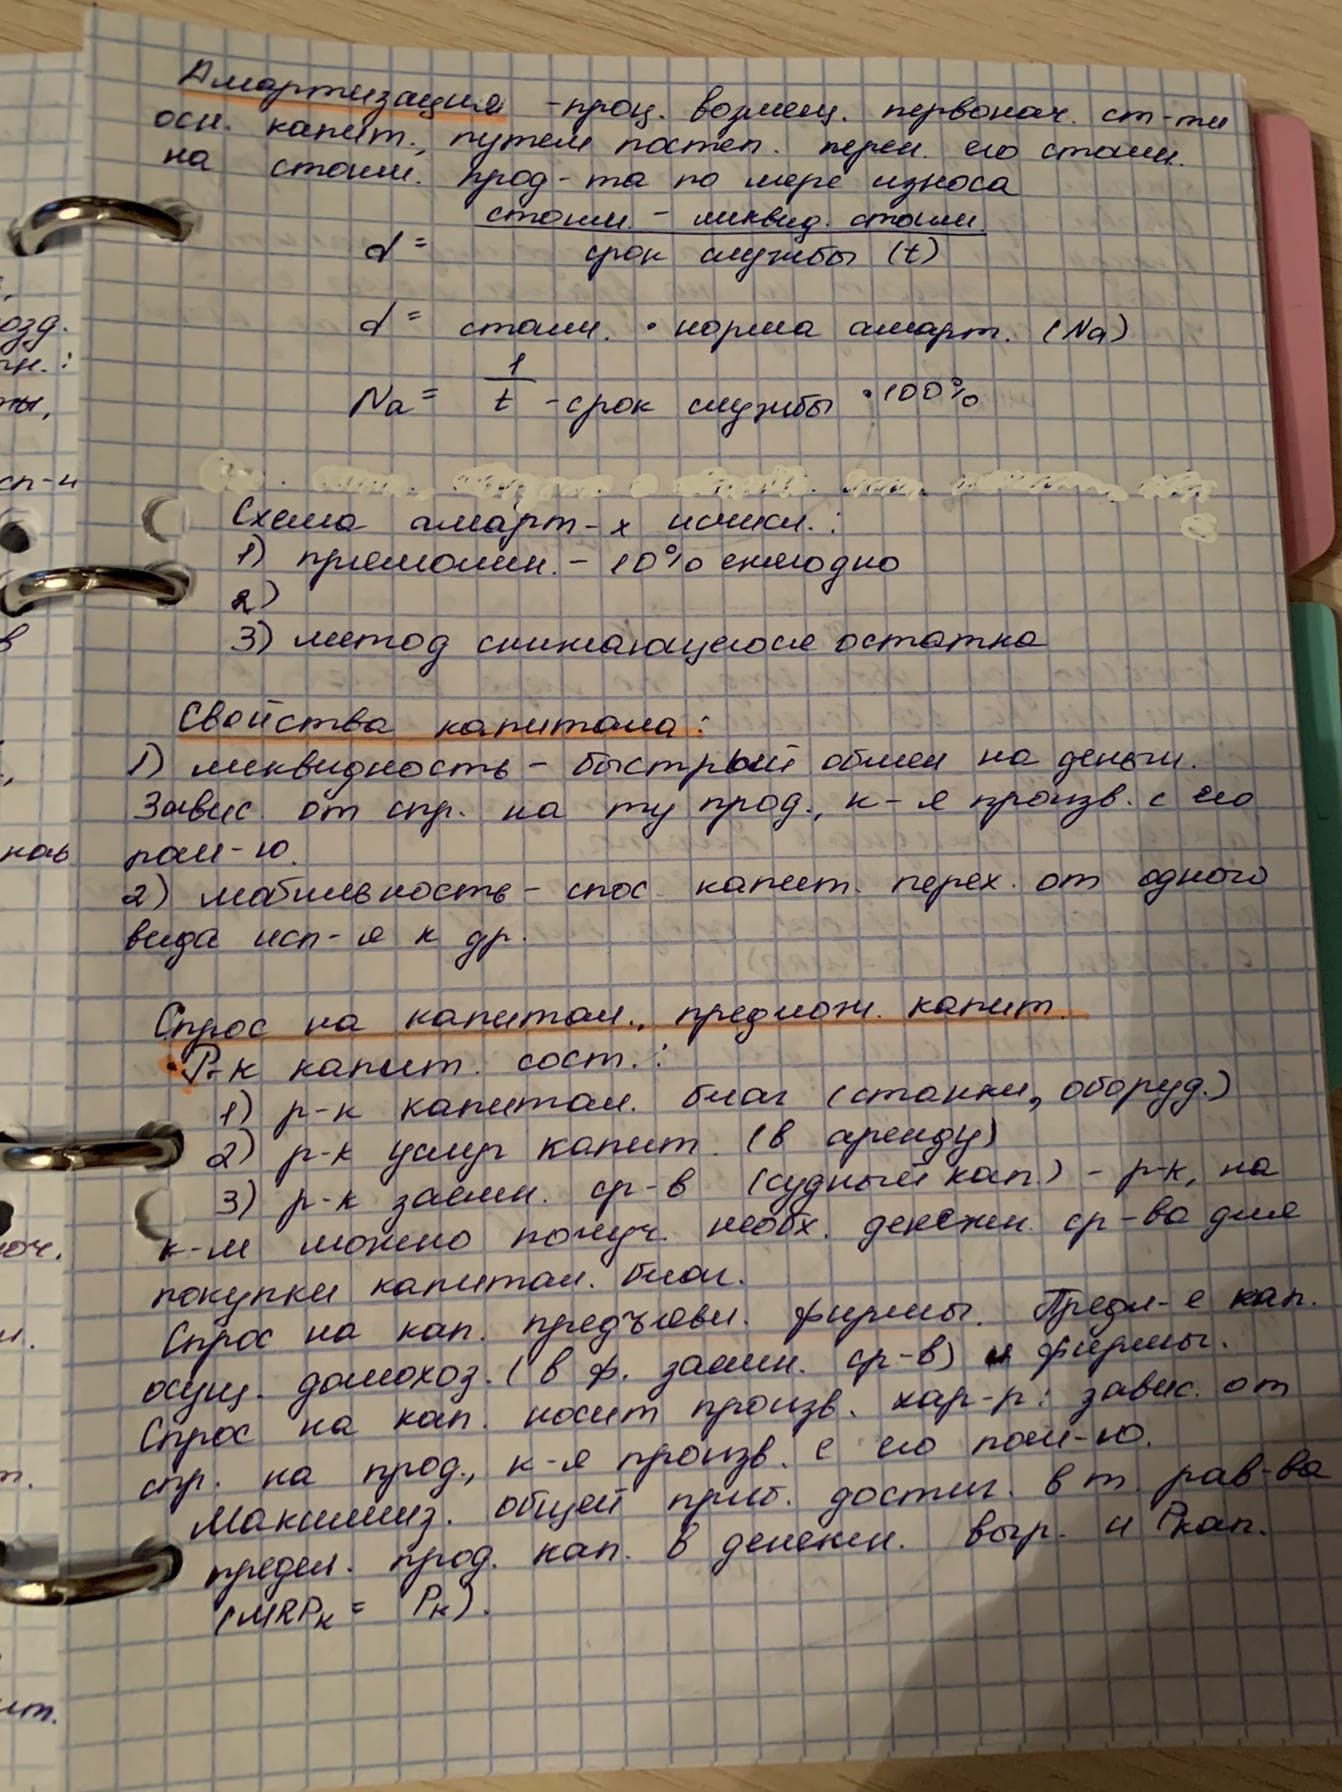 Амортизация - проц. возмещ. первонач. ст-ти
осн. капит., путем постеп. перен. его стоим.
на стоим. прод-та по мере износа
d = стоим. - ликвид. стоим
срок службы (t)
d = стоим. • норма аморт. (Na)
Na = 1/t - срок службы • 100%
Схема аморт-х исчисл.:
1) прямолин. - 10% ежегодно
2)
3) метод снижающегося остатка
Свойства капитала:
1) ликвидность - быстрый обмен на деньги.
Завис. от спр. на ту прод., к-я произв. с его
пом-ю.
2) мобильность - спос. капит. перех. от одного
вида исп-я к др.
Спрос на капитал., предлож. капит.
• Р-к капит. сост.:
1) р-к капитал. благ (станки, оборуд.)
2) р-к услуг капит. (в аренду)
3) р-к заемн. ср-в (судный кап.) - р-к, на
к-м можно получ. необх. денежн. ср-ва для
покупки капитал. благ.
Спрос на кап. предъявл. фирмы. Предл-е кап.
осущ. домохоз. (в ф. заемн. ср-в) и фирмы.
Спрос на кап. носит произв. хар-р: завис. от
спр. на прод., к-я произв. с его пом-ю.
Максимиз. общей приб. достиг. в т. рав-ва
предел. прод. кап. в денежн. выр. и Pкап.
(MRPк = Pк).
озд.
ты,
сп-и
в
нов
юч.
и.
т.
ит.